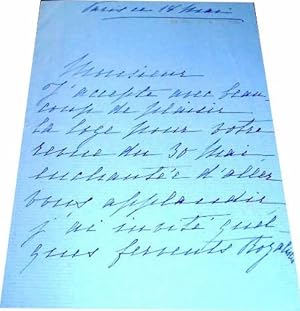 Paris ce 18 Mai
Monsieur
J'accepte avec beau-
coup de plaisir
la loge pour votre
revue du 30 Mai
enchantée d'aller
vous applaudir
j'ai invité quel-
ques fervents